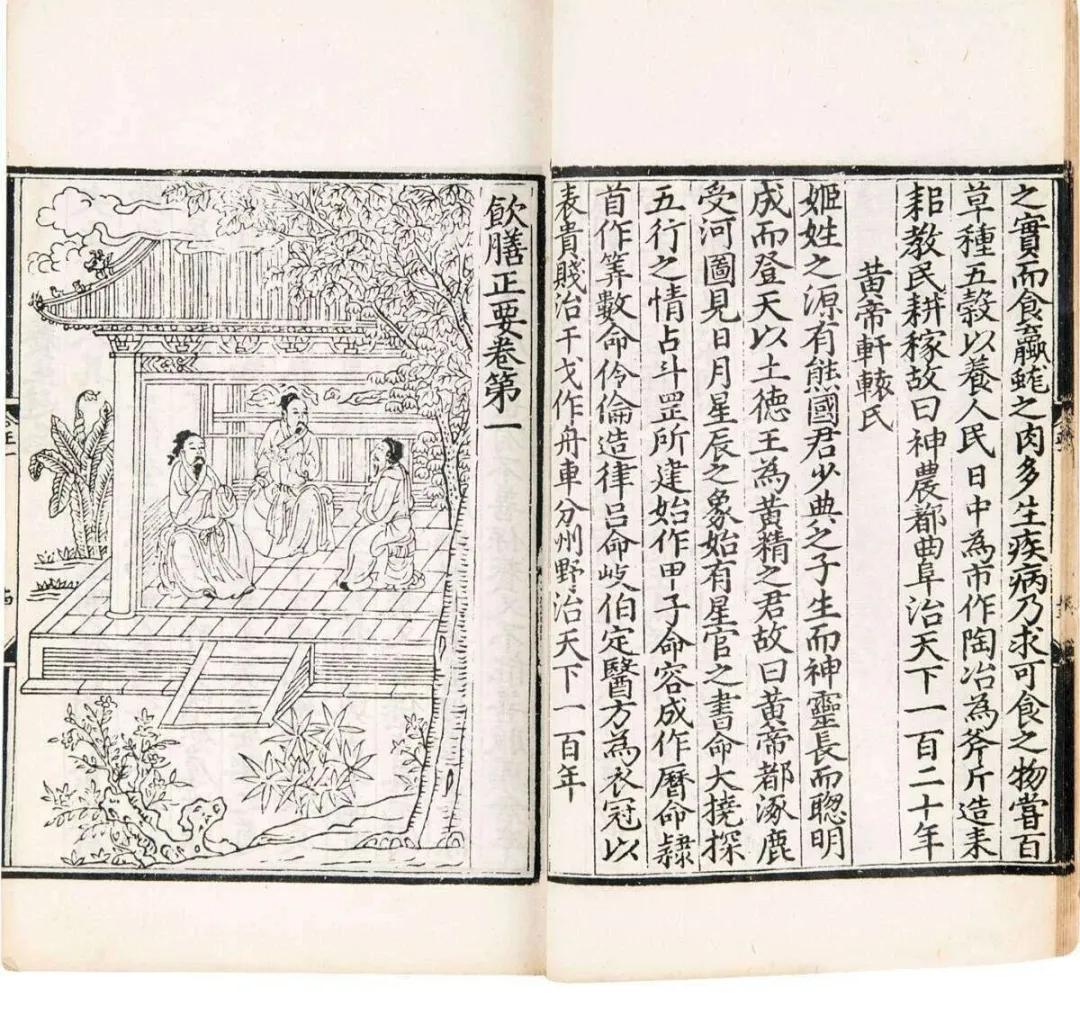 之實而食蠃蠬之肉多生疾病乃求可食之物嘗百
草種五穀以養人民日中為市作陶冶為斧斤造耒
耜教民耕稼故曰神農都曲阜治天下一百二十年
黃帝軒轅氏
姬姓之源有熊國君少典之子生而神靈長而聰明
成而登天以土德王為黃精之君故曰黃帝都涿鹿
受河圖見日月星辰之象始有星官之書命大撓探
五行之情占斗罡所建始作甲子命容成作曆命隸
首作筭數命伶倫造律呂命岐伯定醫方為衣冠以
表貴賤治干戈作舟車分州野治天下一百年
飲膳正要卷第一